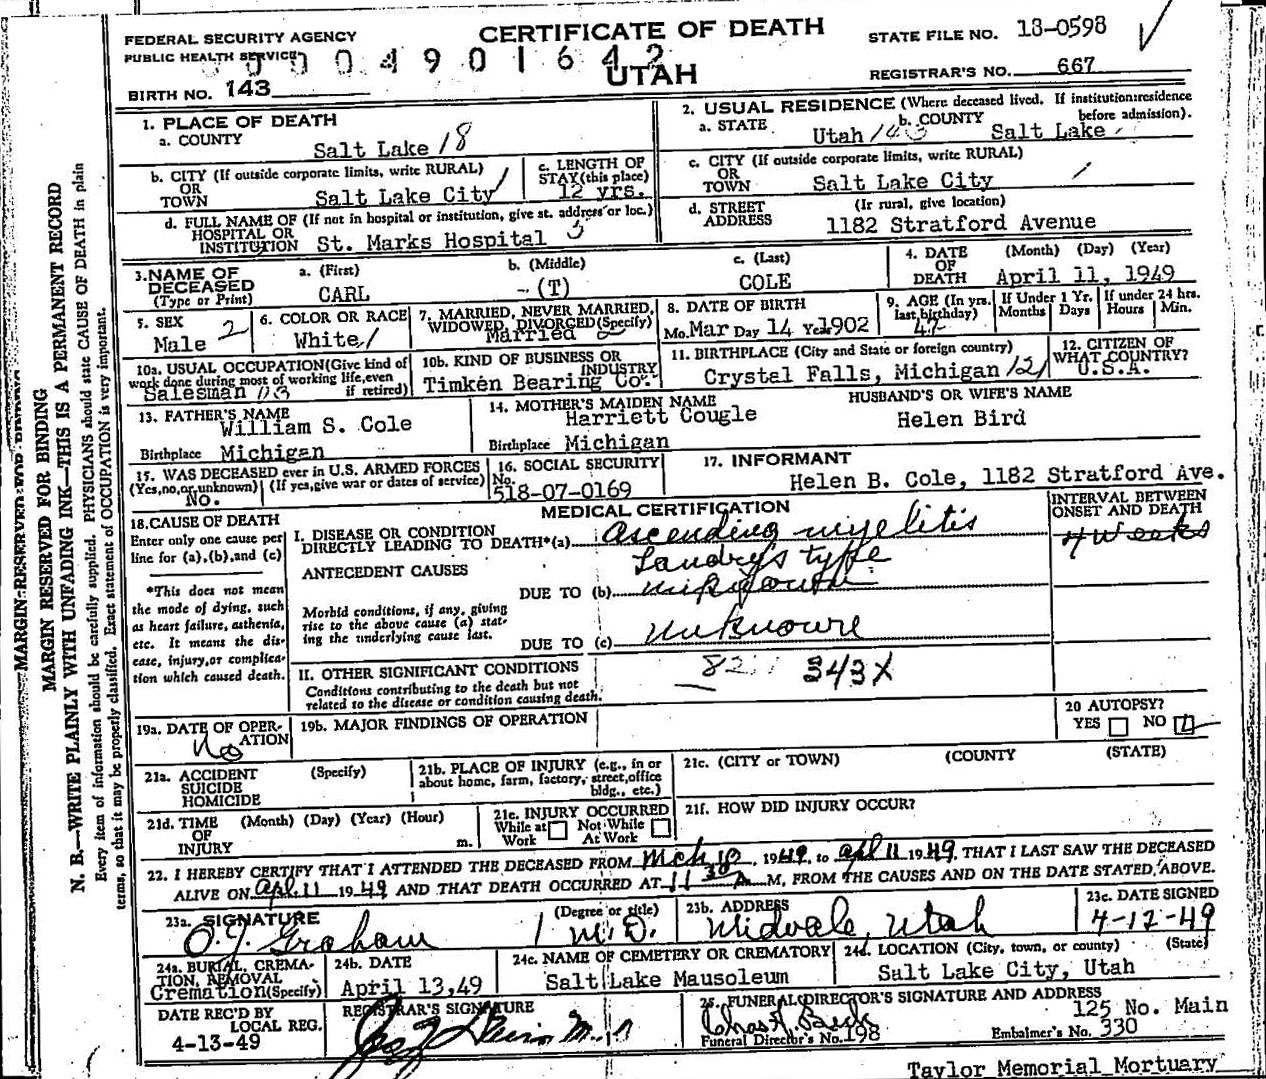 CERTIFICATE OF DEATH
UTAH
FEDERAL SECURITY AGENCY
PUBLIC HEALTH SERVICE
0004901642
BIRTH NO. 143
STATE FILE NO. 18-0598
REGISTRAR'S NO. 667
MARGIN RESERVED FOR BINDING
N. B.—WRITE PLAINLY WITH UNFADING INK—THIS IS A PERMANENT RECORD
Every item of information should be carefully supplied. PHYSICIANS should state CAUSE OF DEATH in plain
terms, so that it may be properly classified. Exact statement of OCCUPATION is very important.
1. PLACE OF DEATH
a. COUNTY
Salt Lake 18
b. CITY (If outside corporate limits, write RURAL)
OR
TOWN Salt Lake City
c. LENGTH OF
STAY (this place)
12 yrs.
d. FULL NAME OF (If not in hospital or institution, give st. address or loc.)
HOSPITAL OR
INSTITUTION St. Marks Hospital
2. USUAL RESIDENCE (Where deceased lived. If institution: residence
before admission).
a. STATE Utah 143
b. COUNTY Salt Lake
c. CITY (If outside corporate limits, write RURAL)
OR
TOWN Salt Lake City
d. STREET (If rural, give location)
ADDRESS 1182 Stratford Avenue
3. NAME OF
DECEASED
(Type or Print)
a. (First) CARL
b. (Middle) - (T)
c. (Last) COLE
4. DATE (Month) (Day) (Year)
OF
DEATH April 11, 1949
5. SEX Male 2
6. COLOR OR RACE White
7. MARRIED, NEVER MARRIED,
WIDOWED, DIVORCED (Specify)
Married
8. DATE OF BIRTH
Mo. Mar Day 14 Year 1902
9. AGE (In yrs.
last birthday)
47
If Under 1 Yr.
Months Days
If under 24 hrs.
Hours Min.
10a. USUAL OCCUPATION (Give kind of
work done during most of working life, even
if retired)
Salesman
10b. KIND OF BUSINESS OR
INDUSTRY
Timken Bearing Co.
11. BIRTHPLACE (City and State or foreign country)
Crystal Falls, Michigan 121
12. CITIZEN OF
WHAT COUNTRY?
U.S.A.
13. FATHER'S NAME
William S. Cole
Birthplace Michigan
14. MOTHER'S MAIDEN NAME
Harriett Cougle
Birthplace Michigan
HUSBAND'S OR WIFE'S NAME
Helen Bird
15. WAS DECEASED ever in U.S. ARMED FORCES
(Yes, no, or unknown) (If yes, give war or dates of service)
No.
16. SOCIAL SECURITY
No.
518-07-0169
17. INFORMANT
Helen B. Cole, 1182 Stratford Ave.
MEDICAL CERTIFICATION
INTERVAL BETWEEN
ONSET AND DEATH
18. CAUSE OF DEATH
Enter only one cause per
line for (a), (b), and (c)
*This does not mean
the mode of dying, such
as heart failure, asthenia,
etc. It means the dis-
ease, injury, or complica-
tion which caused death.
I. DISEASE OR CONDITION
DIRECTLY LEADING TO DEATH*(a) Ascending myelitis
4 weeks
Landrys type
ANTECEDENT CAUSES
DUE TO (b) unknown
Morbid conditions, if any, giving
rise to the above cause (a) stat-
ing the underlying cause last.
DUE TO (c) unknown
II. OTHER SIGNIFICANT CONDITIONS
Conditions contributing to the death but not
related to the disease or condition causing death.
82 343X
19a. DATE OF OPER-
ATION
No
19b. MAJOR FINDINGS OF OPERATION
20 AUTOPSY?
YES NO
21a. ACCIDENT (Specify)
SUICIDE
HOMICIDE
21b. PLACE OF INJURY (e.g., in or
about home, farm, factory, street, office
bldg., etc.)
21c. (CITY or TOWN) (COUNTY) (STATE)
21d. TIME (Month) (Day) (Year) (Hour)
OF
INJURY m.
21e. INJURY OCCURRED
While at Work Not While At Work
21f. HOW DID INJURY OCCUR?
22. I HEREBY CERTIFY THAT I ATTENDED THE DECEASED FROM Mch 10, 1949, to Apl 11 1949, THAT I LAST SAW THE DECEASED
ALIVE ON Apl. 11 1949 AND THAT DEATH OCCURRED AT 11 30 A M, FROM THE CAUSES AND ON THE DATE STATED, ABOVE.
23a. SIGNATURE (Degree or title)
O. J. Graham M.D.
23b. ADDRESS
Midvale, Utah
23c. DATE SIGNED
4-12-49
24a. BURIAL, CREMA-
TION, REMOVAL
Cremation (Specify)
24b. DATE
April 13, 49
24c. NAME OF CEMETERY OR CREMATORY
Salt Lake Mausoleum
24d. LOCATION (City, town, or county) (State)
Salt Lake City, Utah
DATE REC'D BY
LOCAL REG.
4-13-49
REGISTRAR'S SIGNATURE
25. FUNERAL DIRECTOR'S SIGNATURE AND ADDRESS
125 No. Main
Funeral Director's No. 198
Embalmer's No. 330
Taylor Memorial Mortuary